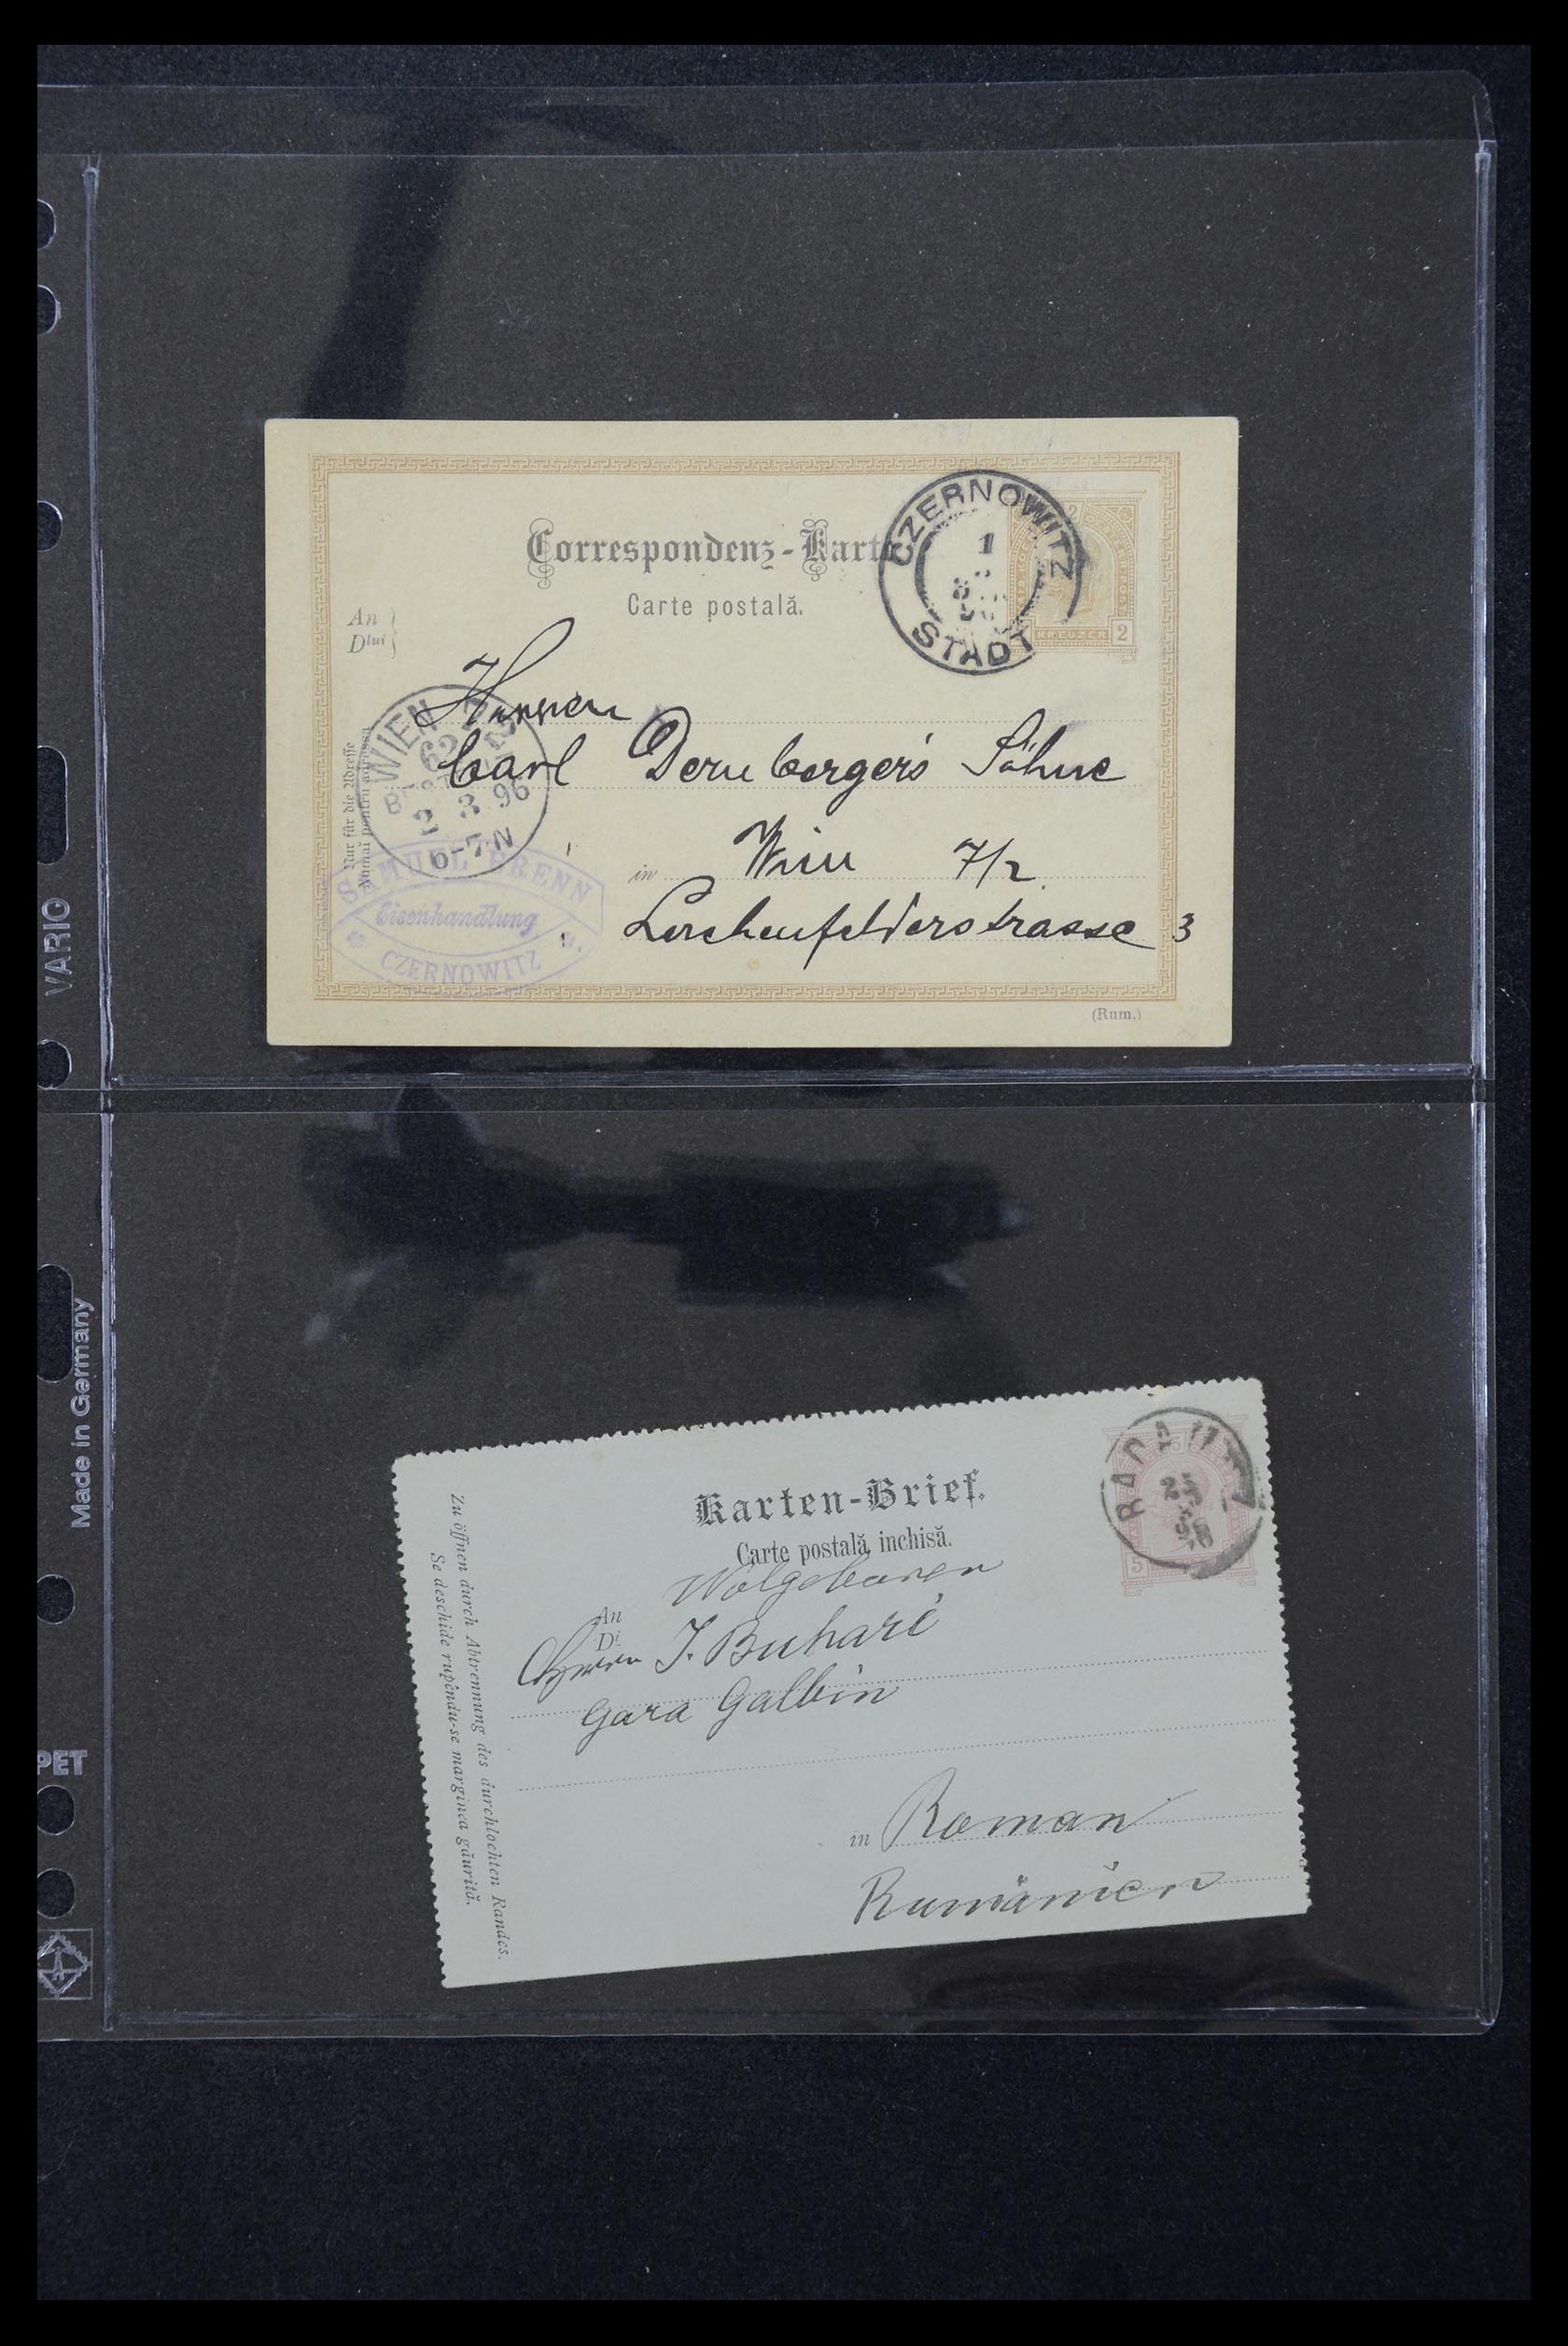 Correspondenz-Karte
Carte postală.
An
Dlui
CZERNOWITZ
1
STADT
KREUZER 2
Herren
Carl Dernberger's Söhne
in Wien 7/2
Lerchenfelderstrasse 3
Nur für die Adresse
Numai pentru adressa
WIEN
62
3 96
6-7N
SAMUEL BRENN
Eisenhandlung
CZERNOWITZ
(Rum.)
VARIO
Made in Germany
PET
Karten-Brief.
Carte postală inchisă.
RADAUTZ
5
Wolgeboren
An
Di
Herrn J. Buhari
Gara Galbin
in Roman
Rumänien
Zu öffnen durch Abtrennung des durchlochten Randes.
Se deschide rupêndu-se marginea găurită.